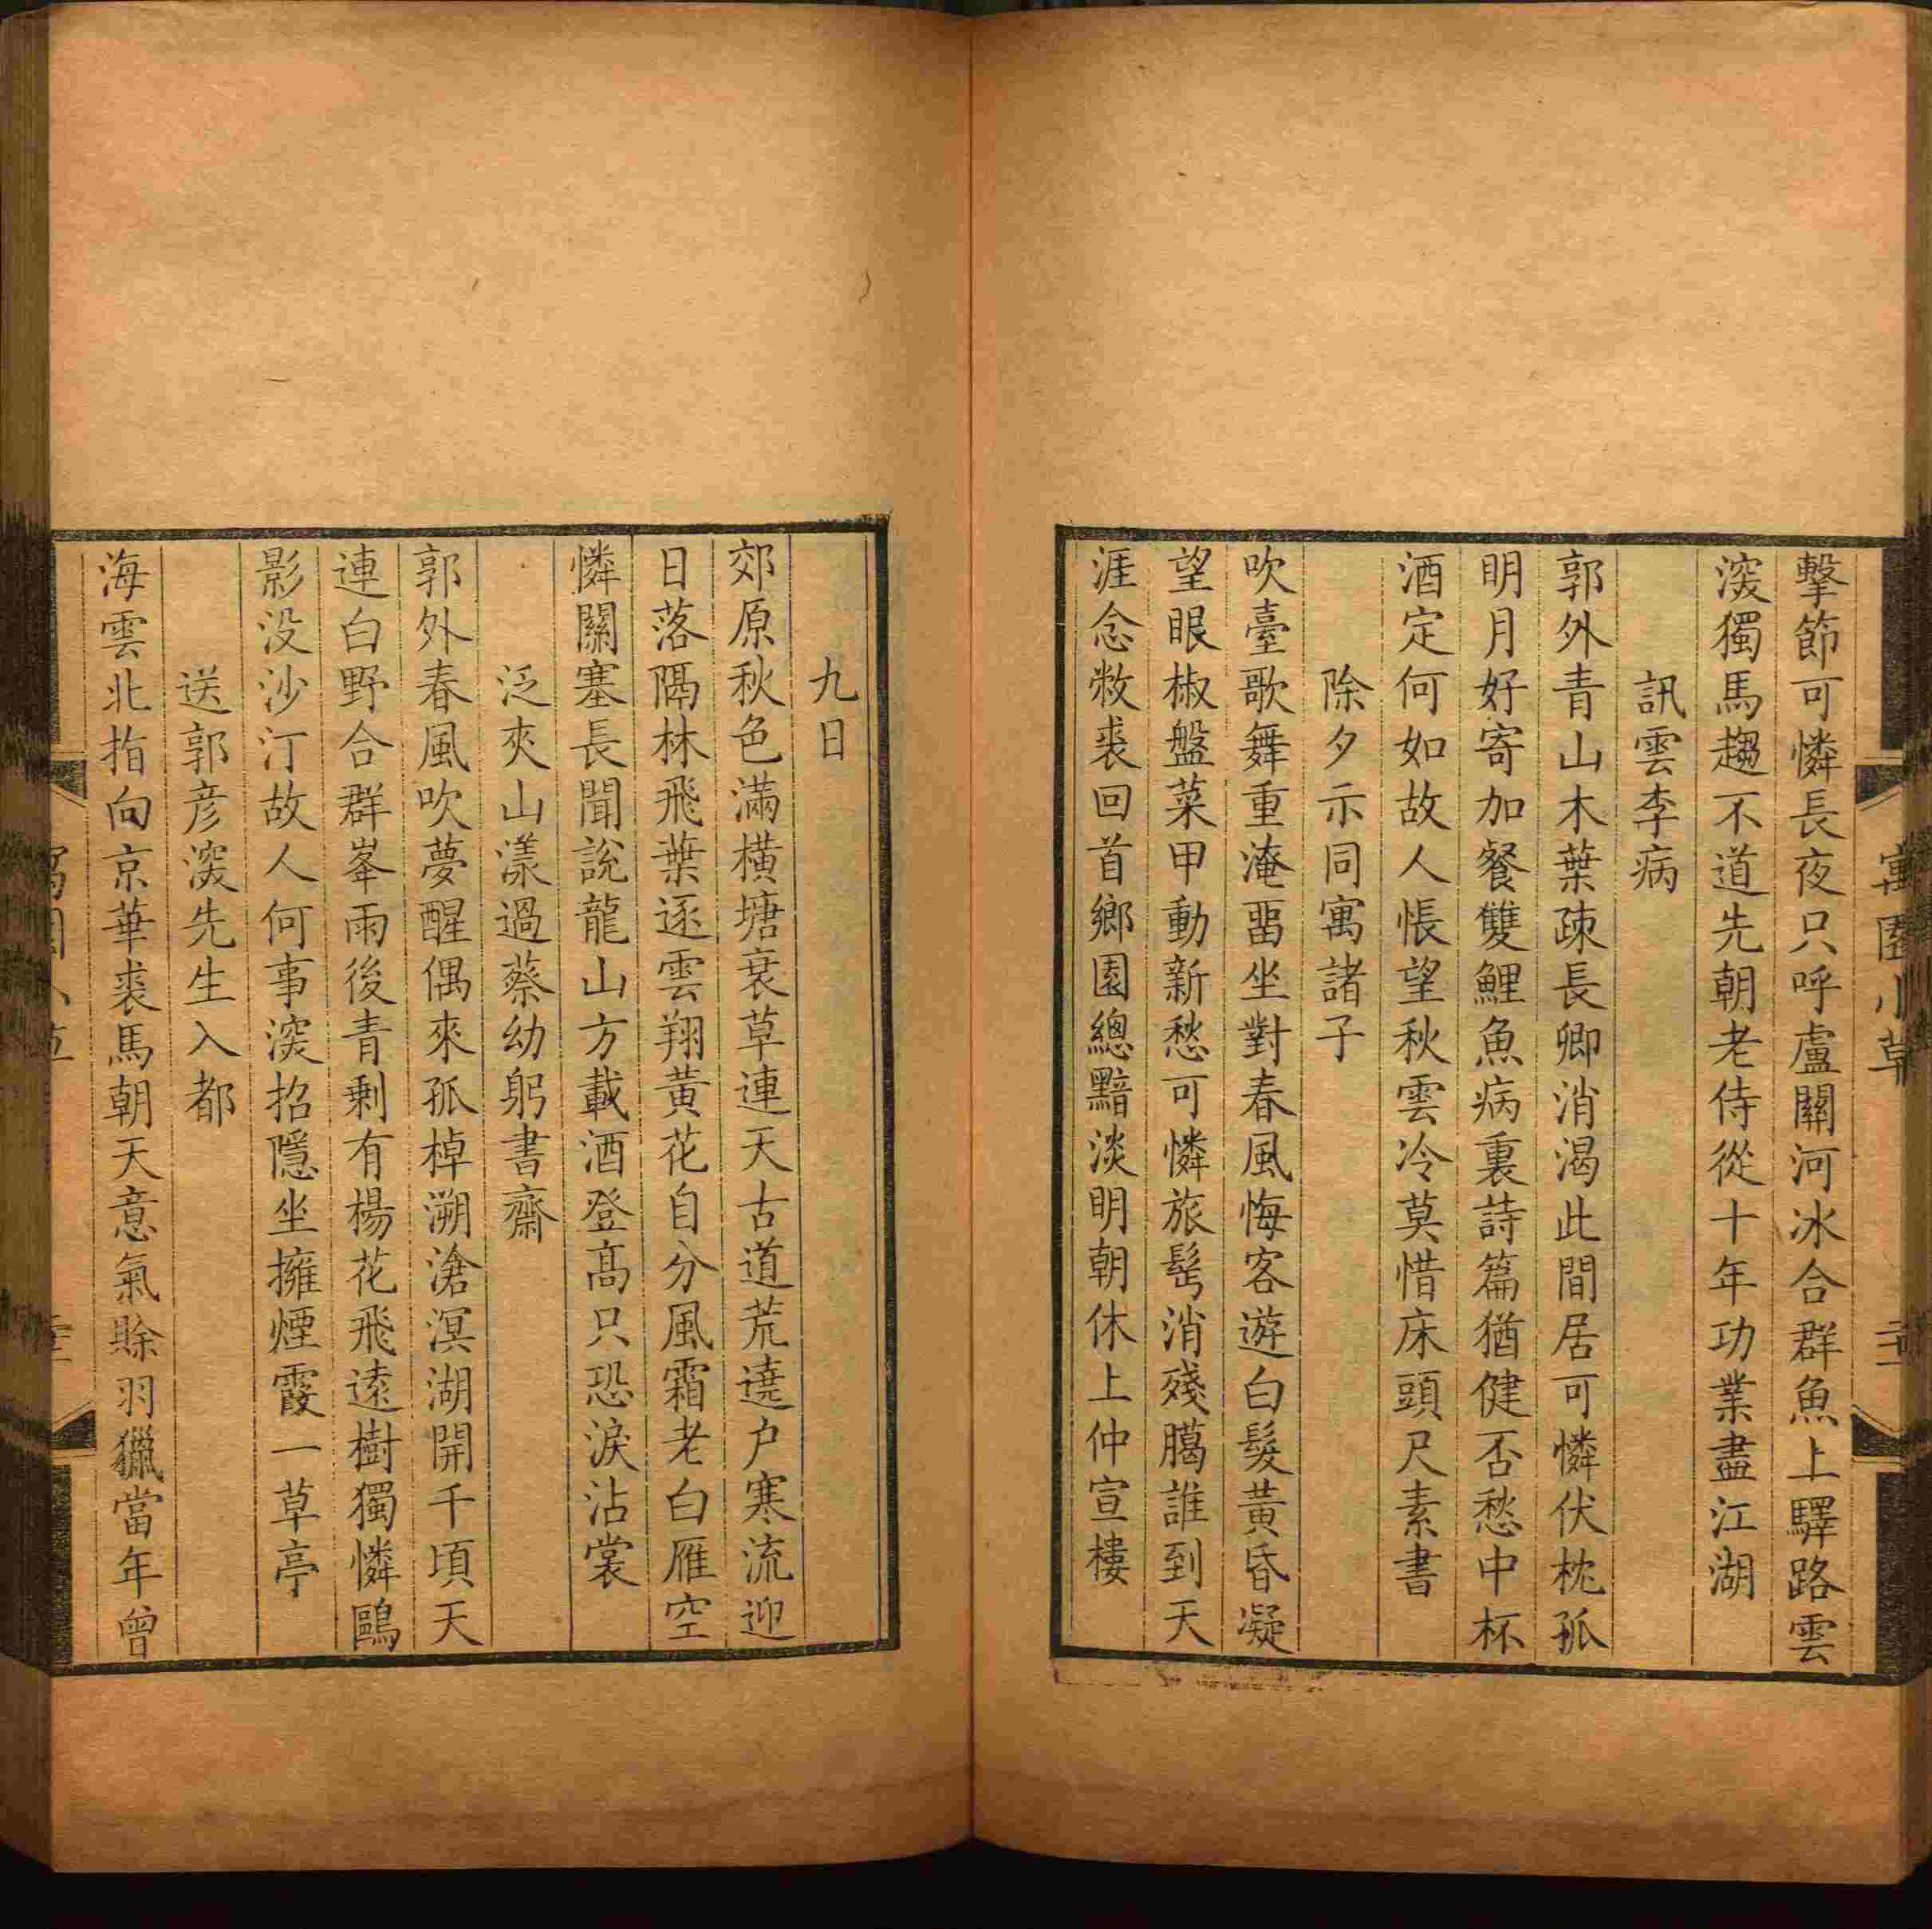 寓園小草
擊節可憐長夜只呼盧關河冰合群魚上驛路雲
深獨馬趨不道先朝老侍從十年功業盡江湖
訊雲李病
郭外青山木葉疎長卿消渴此間居可憐伏枕孤
明月好寄加餐雙鯉魚病裏詩篇猶健否愁中杯
酒定何如故人悵望秋雲冷莫惜床頭尺素書
除夕示同寓諸子
吹臺歌舞重淹畱坐對春風悔客遊白髮黃昏凝
望眼椒盤菜甲動新愁可憐旅髩消殘臈誰到天
涯念敝裘回首鄉園總黯淡明朝休上仲宣樓
九日
郊原秋色滿橫塘衰草連天古道荒遶户寒流迎
日落隔林飛葉逐雲翔黃花自分風霜老白雁空
憐關塞長聞說龍山方載酒登高只恐淚沾裳
泛夾山漾過蔡幼躬書齋
郭外春風吹夢醒偶來孤棹溯滄溟湖開千頃天
連白野合群峯雨後青剩有楊花飛遠樹獨憐鷗
影没沙汀故人何事深招隱坐擁煙霞一草亭
送郭彦深先生入都
海雲北指向京華裘馬朝天意氣賖羽獵當年曾